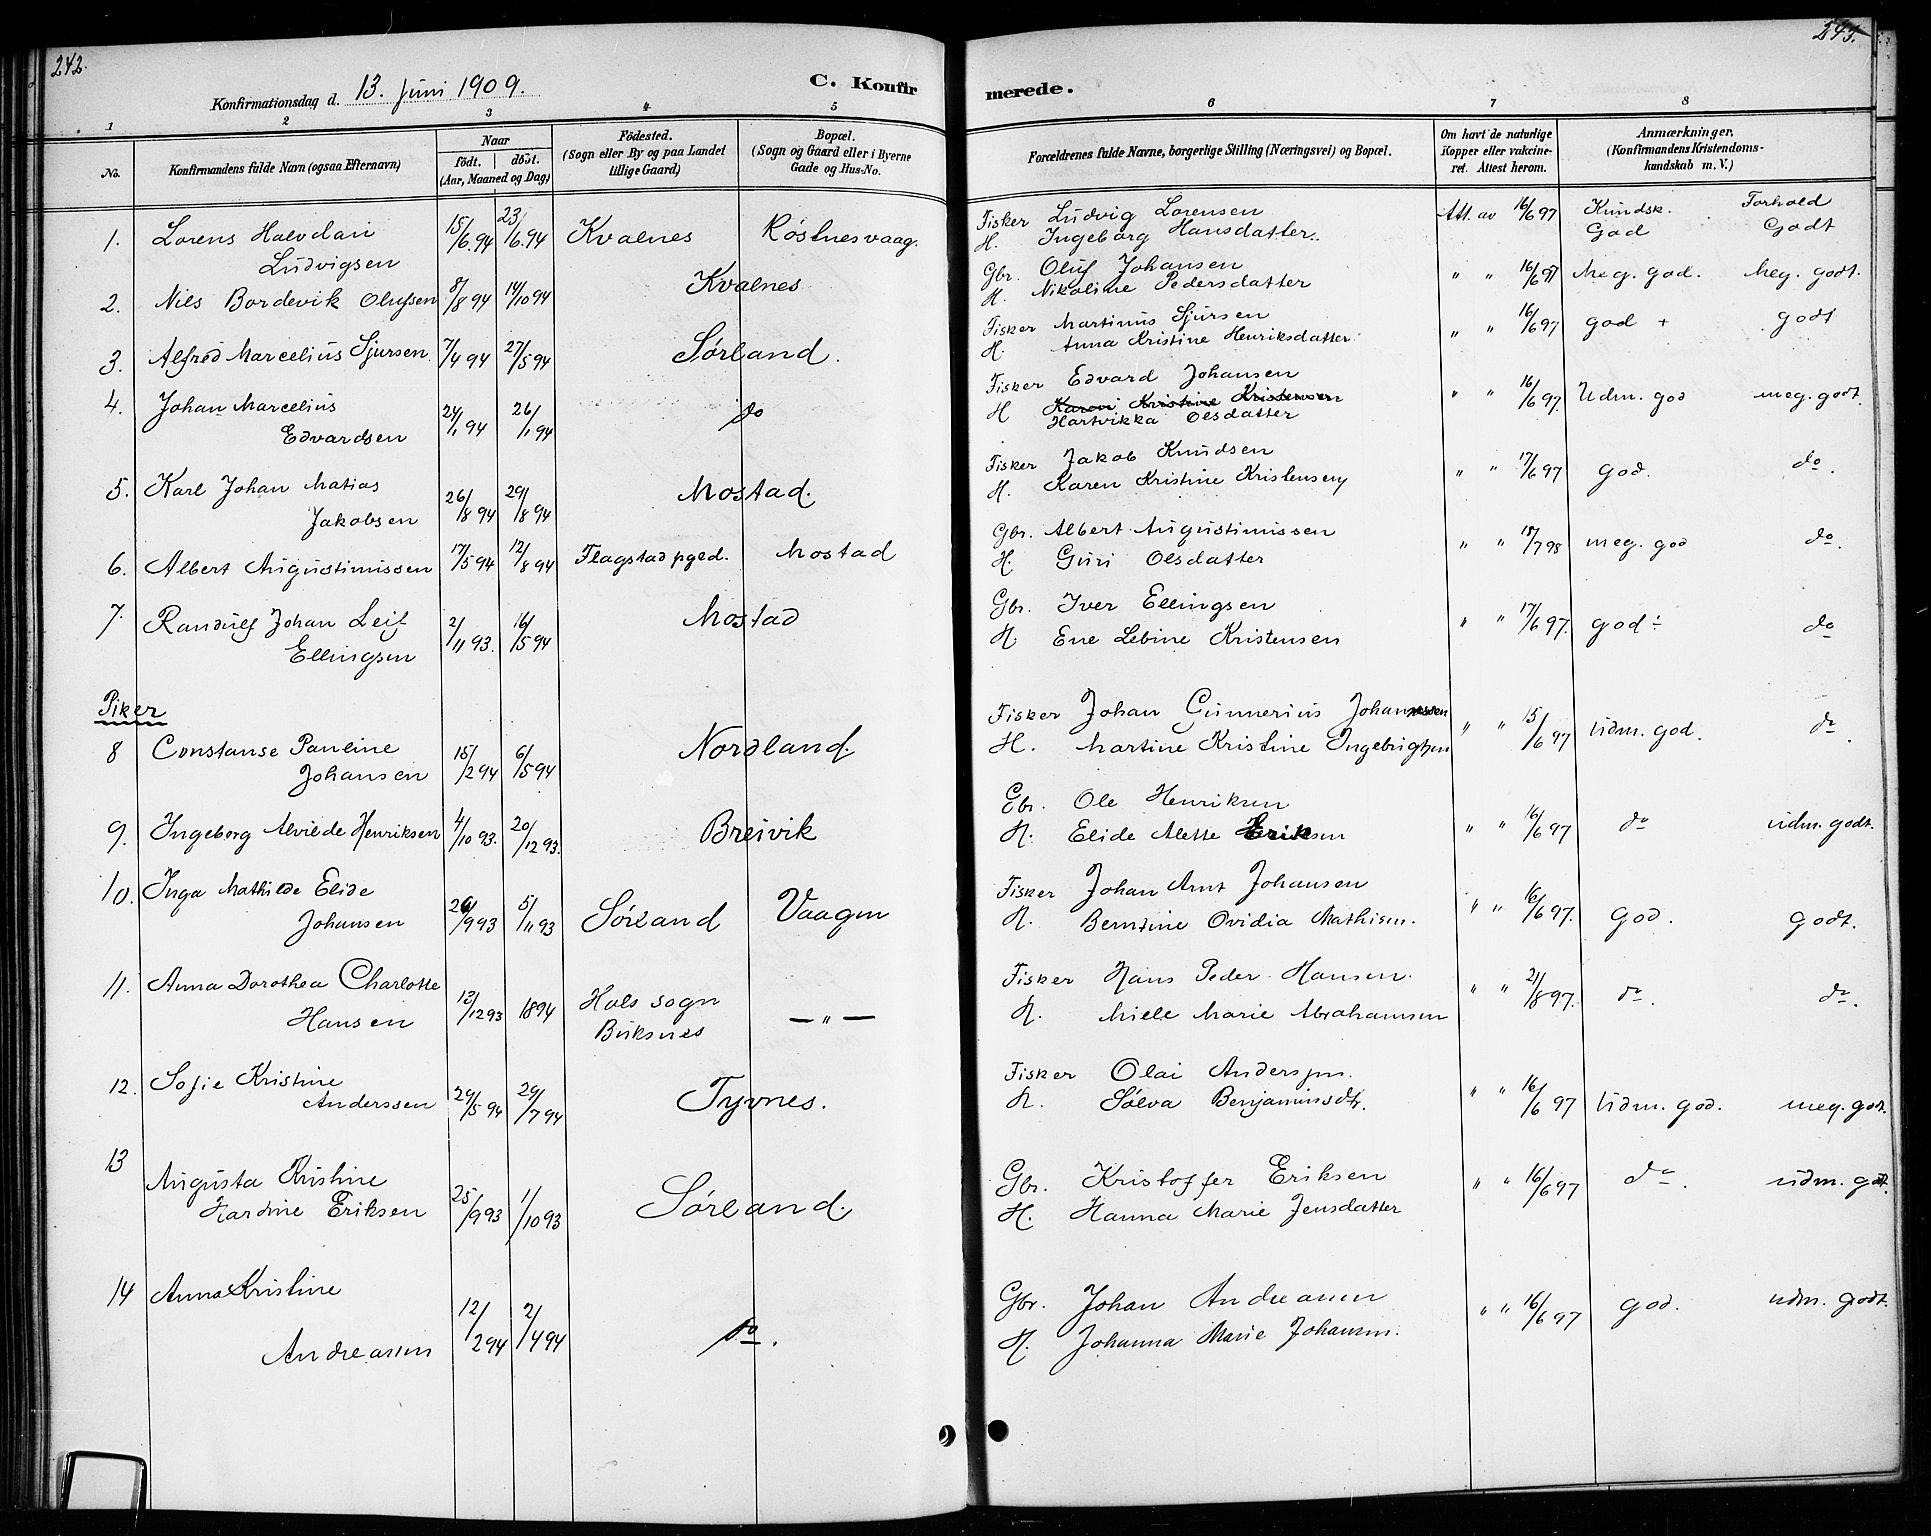 242.
243.
Konfirmationsdag d. 13. Juni 1909.
C. Konfir
merede.
1 2 3 4 5 6 7 8
No.
Konfirmandens fulde Navn (ogsaa Efternavn)
Naar
födt. döbt.
(Aar, Maaned og Dag)
Födested.
(Sogn eller By og paa Landet
tillige Gaard)
Bopæl.
(Sogn og Gaard eller i Byerne
Gade og Hus-No.
Forældrenes fulde Navne, borgerlige Stilling (Næringsvei) og Bopæl.
Om havt de naturlige
Kopper eller vakcine-
ret. Attest herom.
Anmærkninger.
(Konfirmandens Kristendoms-
kundskab m. V.)
Kundsk. Forhold
1. Lorens Halvdan
Ludvigsen
15/6.94 23/6.94 Kvalnes Röstnesvaag.
Fisker Ludvig Lorensen
H. Ingeborg Hansdatter.
Att. av 16/6 97 God Godt
2. Nils Bordevik Olufsen 8/8 94 14/10 94 Kvalnes
Gbr. Oluf Johansen
H. Nikoline Pedersdatter
" " 16/6 97 Meg. god. Meg. godt.
3. Alfred Marcelius Sjursen 7/4 94 27/5 94 Sørland.
Fisker Martinus Sjursen
H. Anna Kristine Henriksdatter
" " 16/6 97 god + godt
4. Johan Marcelius
Edvardsen
24/1 94 26/1 94 do
Fisker Edvard Johansen
H Karen Kristine Kristensen
Hartvikka Olsdatter
" " 16/6 97. Udm. god meg. godt.
5. Karl Johan Matias
Jakobsen
26/8 94 29/8 94 Mostad.
Fisker Jakob Knudsen
H. Karen Kristine Kristensen
" " 17/6 97 god. do.
6. Albert Augustinussen 17/5 94 12/8 94 Flagstad pgld. Mostad
Gbr. Albert Augustinussen
H. Guri Olsdatter
" " 18/7 98 meg. god do.
7. Randulf Johan Leif
Ellingsen
2/11 93. 16/5 94 Mostad
Gbr. Iver Ellingsen
H. Ene Lebine Kristensen
" " 17/6 97. god ÷ do
Piker
8 Constanse Pauline
Johansen
15/2 94 6/5 94 Nordland.
Fisker Johan Gunnerius Johanssen
H. Martine Kristine Ingebrigtsen
" " 15/6 97 Udm. god. do.
9. Ingeborg Alvilde Henriksen 4/10 93. 20/12 93. Breivik
Gbr. Ole Henriksen
H. Elide Alette Eriksen
" " 16/6 97 do udm. godt.
10. Inga Mathilde Elide
Johansen
/9 93 5/11 93 Sørland Vaagen
Fisker Johan Arnt Johansen
H. Berntine Ovidia Mathisen.
" " 16/6 97. God. godt.
11. Anna Dorothea Charlotte
Hansen
13/12 93 1894 Hols sogn
Buksnes
— " —
Fisker Hans Peder Hansen.
H. Miele Marie Abrahamsen
" " 21/8 97. do. do.
12. Sofie Kristine
Anderssen
29/5 94 29/7 94 Tyvnes.
Fisker Olai Anderssen.
H. Sølva Benjaminsdtr.
" " 16/6 97 Udm. god. meg. godt.
13 Augusta Kristine
Hardine Eriksen
25/9 93 1/10 93 Sørland.
Gbr. Kristoffer Eriksen
H. Hanna Marie Jensdatter
" " 16/6 97 do. udm. godt.
14 Anna Kristine
Andreasen
12/2 94 2/4 94 do.
Gbr. Johan Andreasen
H. Johanna Marie Johansen.
" " 16/6 97 god. udm. godt.